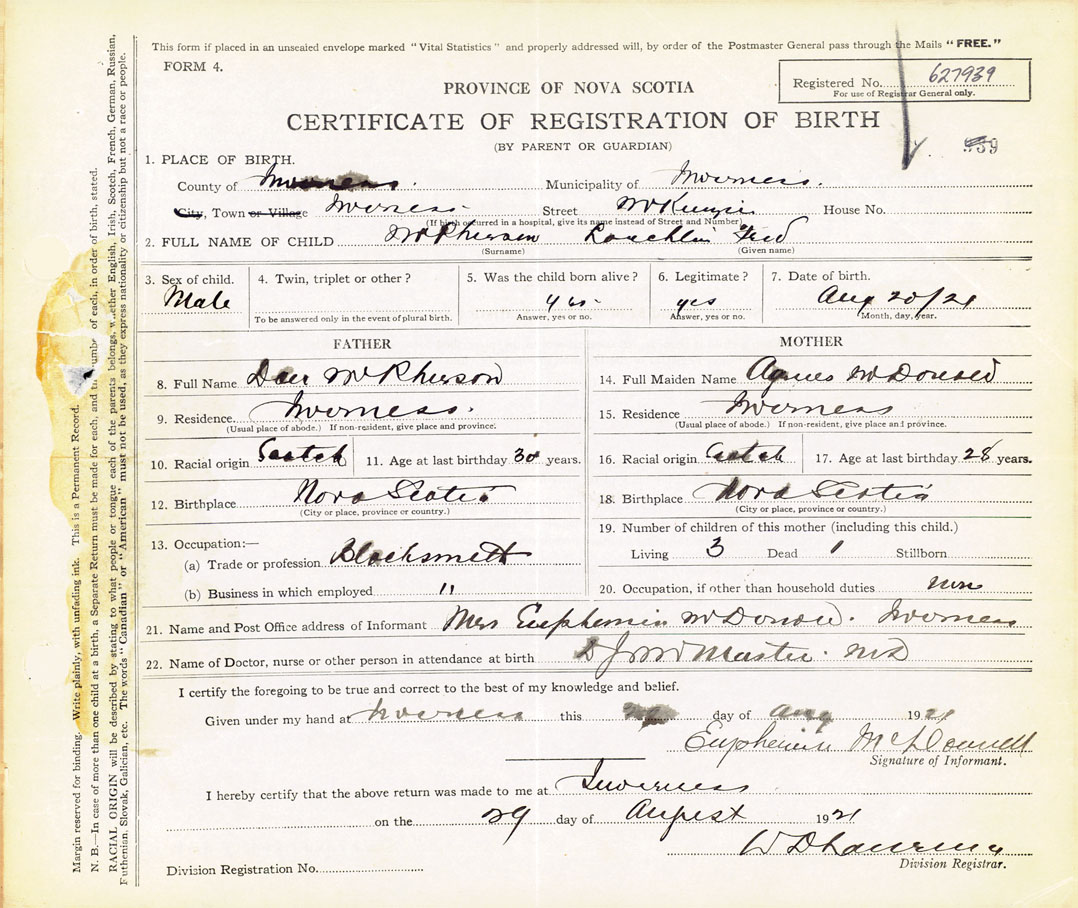 This form if placed in an unsealed envelope marked "Vital Statistics" and properly addressed will, by order of the Postmaster General pass through the Mails "FREE."
FORM 4.
Registered No. 627939
For use of Registrar General only.
PROVINCE OF NOVA SCOTIA
CERTIFICATE OF REGISTRATION OF BIRTH
(BY PARENT OR GUARDIAN)
1. PLACE OF BIRTH.
County of Inverness. Municipality of Inverness.
City, Town or Village Inverness Street McKenzie House No.
(If birth occurred in a hospital, give its name instead of Street and Number)
2. FULL NAME OF CHILD McPherson Lauchlin Fred
(Surname) (Given name)
3. Sex of child. 4. Twin, triplet or other? 5. Was the child born alive? 6. Legitimate? 7. Date of birth.
Male yes yes Aug 20/21
To be answered only in the event of plural birth. Answer, yes or no. Answer, yes or no. Month, day, year.
FATHER
8. Full Name Dan McPherson
9. Residence Inverness.
(Usual place of abode.) If non-resident, give place and province.
10. Racial origin Scotch 11. Age at last birthday 30 years.
12. Birthplace Nova Scotia
(City or place, province or country.)
13. Occupation:—
(a) Trade or profession Blacksmith
(b) Business in which employed "
MOTHER
14. Full Maiden Name Agnes McDonald
15. Residence Inverness
(Usual place of abode.) If non-resident, give place and province.
16. Racial origin Scotch 17. Age at last birthday 28 years.
18. Birthplace Nova Scotia
(City or place, province or country.)
19. Number of children of this mother (including this child.)
Living 3 Dead 1 Stillborn
20. Occupation, if other than household duties
21. Name and Post Office address of Informant Mrs Euphemia McDonald. Inverness
22. Name of Doctor, nurse or other person in attendance at birth McMaster. MD
I certify the foregoing to be true and correct to the best of my knowledge and belief.
Given under my hand at Inverness this day of Aug 1921
Euphemia McDonnell
Signature of Informant.
I hereby certify that the above return was made to me at Inverness
on the 29 day of August 1921
Division Registrar.
Division Registration No.
Margin reserved for binding. Write plainly, with unfading ink. This is a Permanent Record.
N. B.—In case of more than one child at a birth, a Separate Return must be made for each, and the number of each, in order of birth, stated.
RACIAL ORIGIN will be described by stating to what people or tongue each of the parents belongs, whether English, Irish, Scotch, French, German, Russian,
Ruthenian, Slovak, Galician, etc. The words "Canadian" or "American" must not be used, as they express nationality or citizenship but not a race or people.